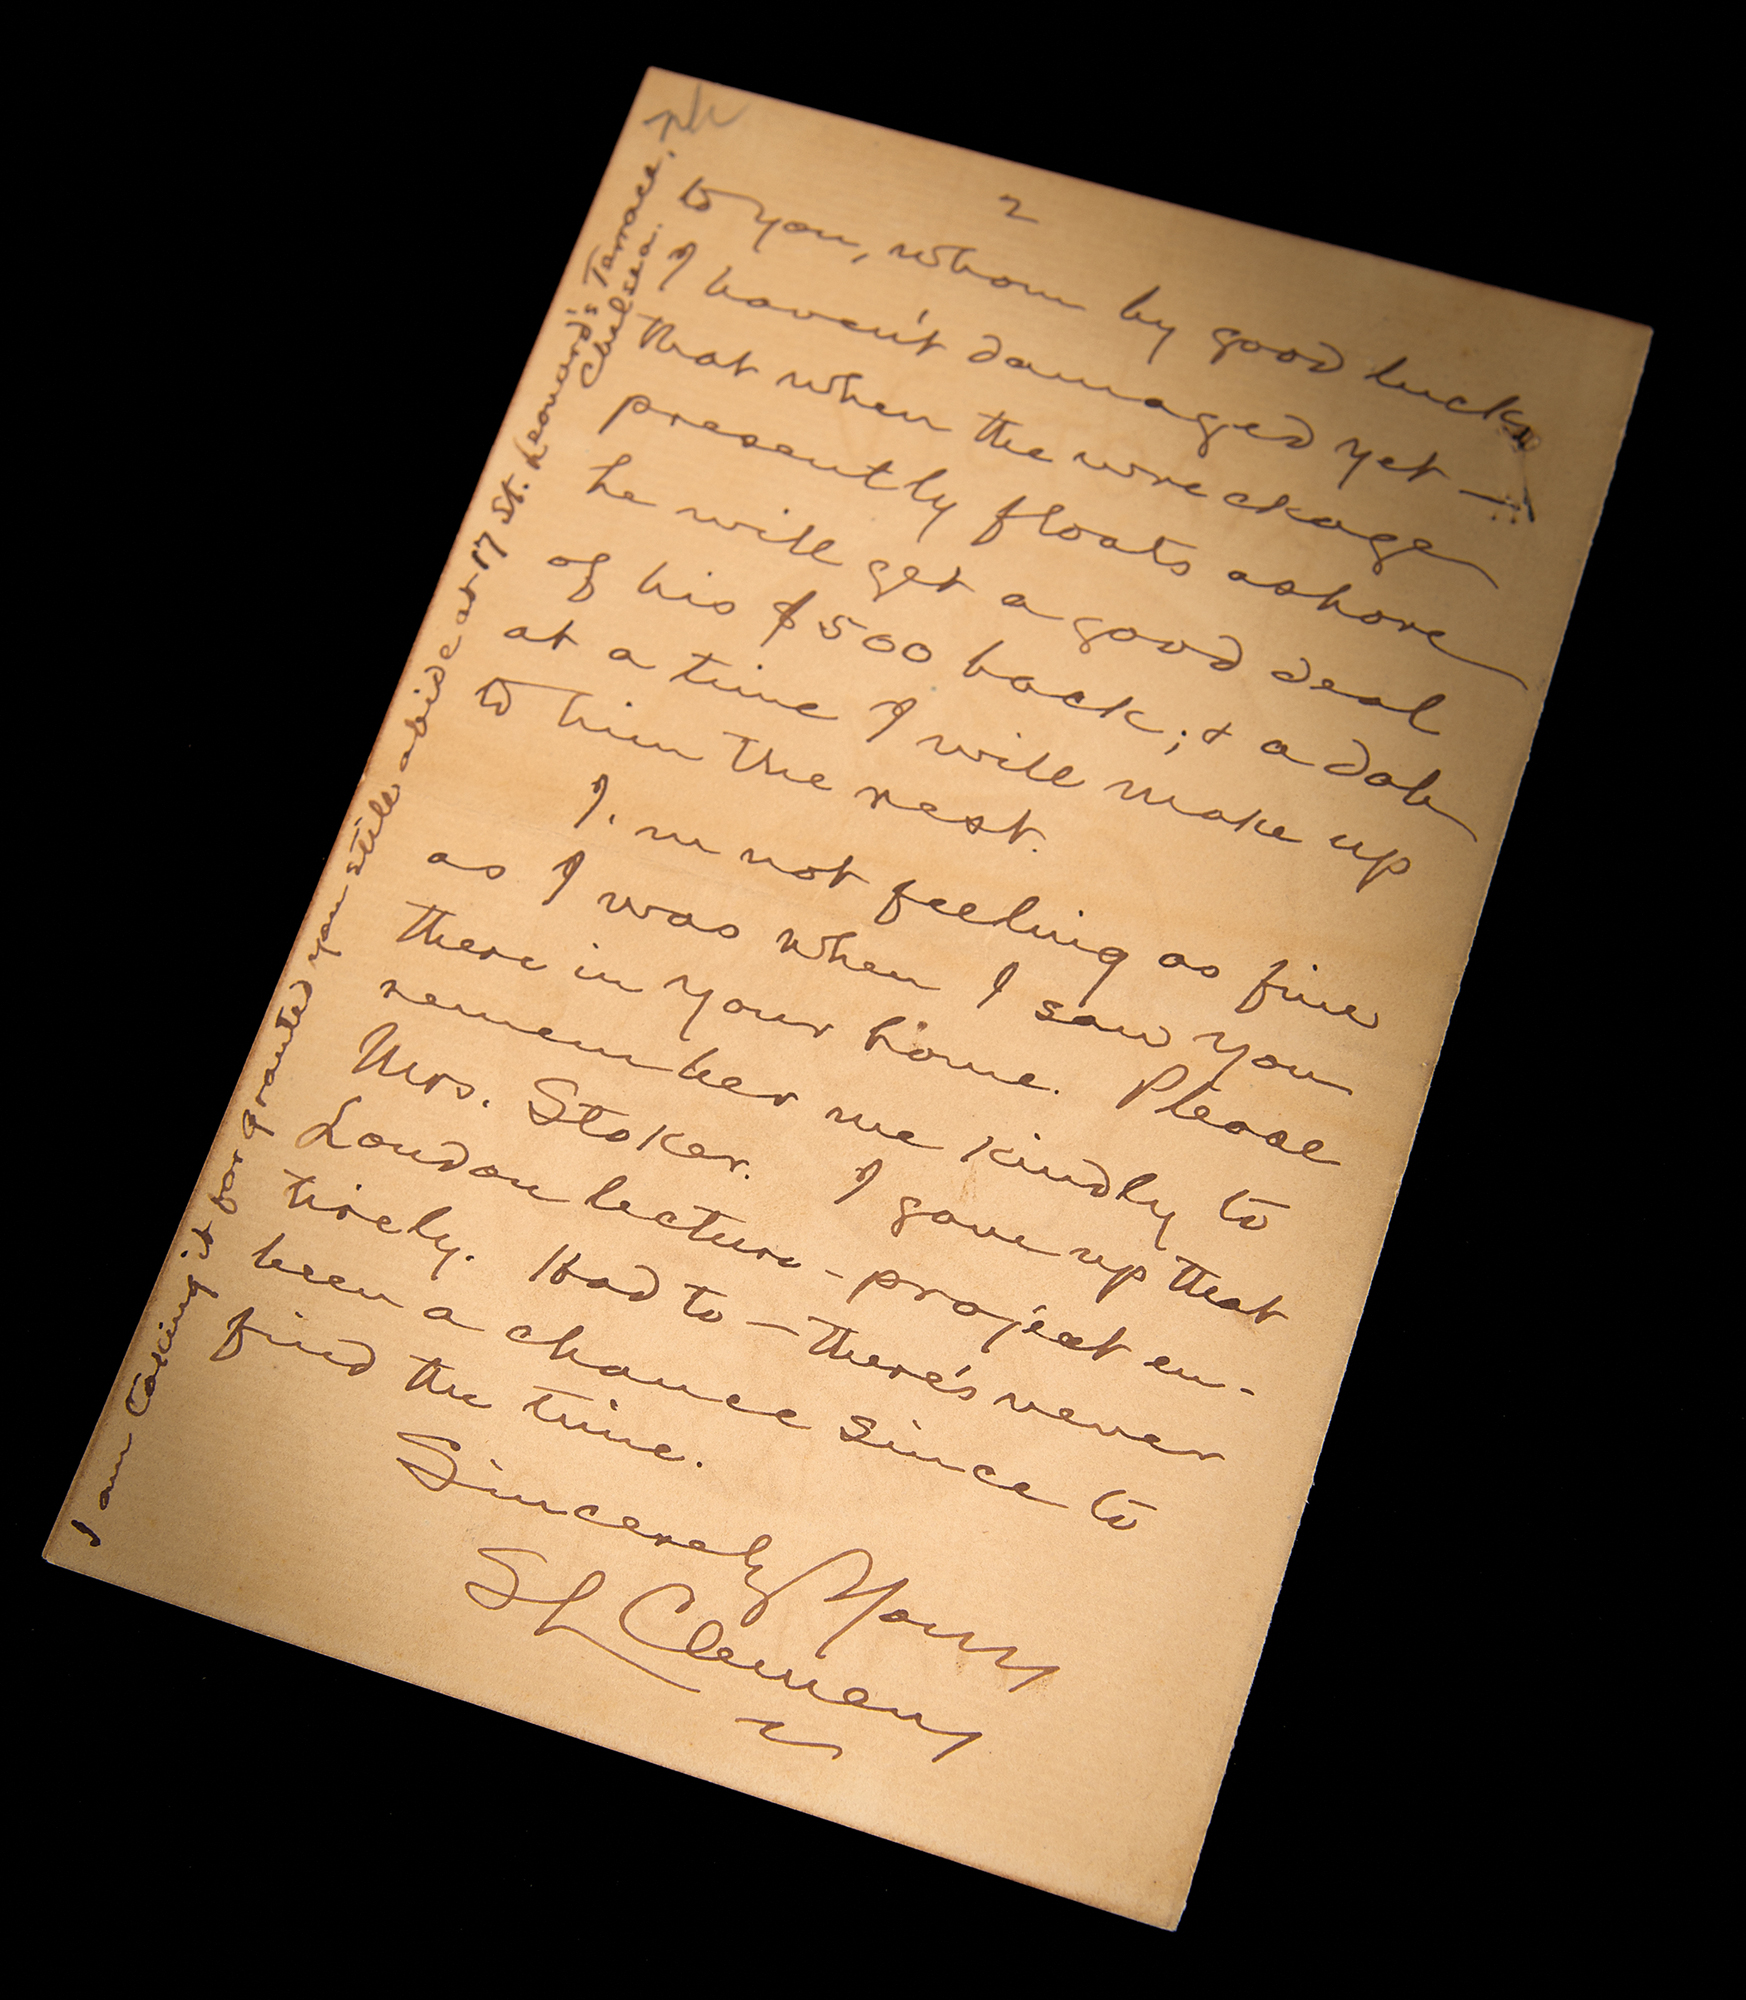 2
to you, whom by good luck
I haven't damaged yet —
that when the wreckage
presently floats ashore
he will get a good deal
of his $500 back; & a dab
at a time I will make up
to him the rest.
I'm not feeling as fine
as I was when I saw you
there in your home. Please
remember me kindly to
Mrs. Stoker. I gave up that
London lecture-project en-
tirely. Had to — there's never
been a chance since to
find the time.
Sincerely Yours
SL Clemens
I am taking it for granted you still abide at 17 St. Leonard's Terrace,
Chelsea.